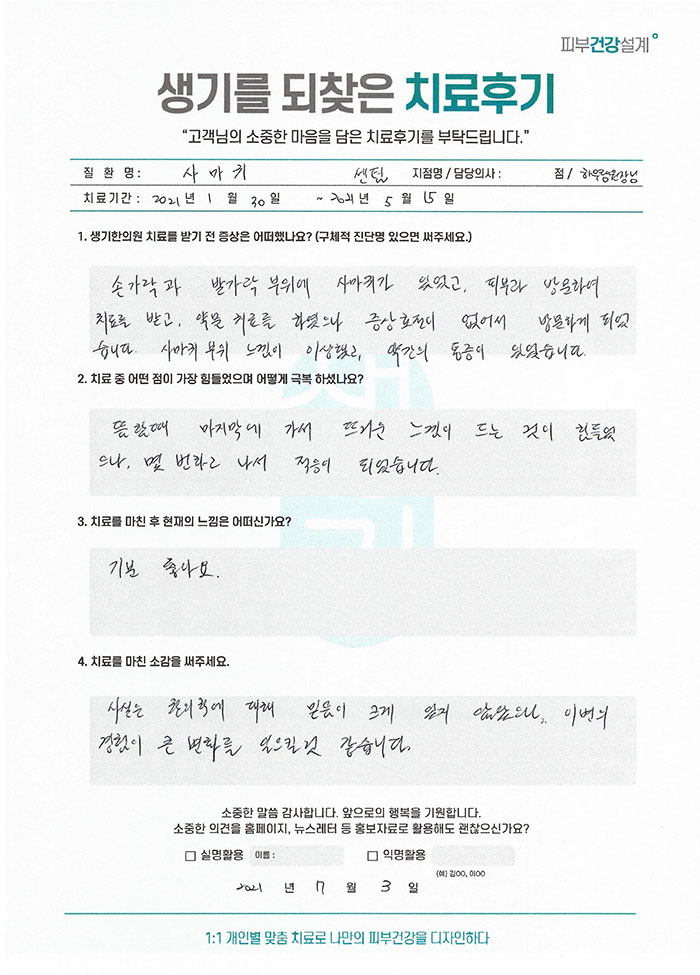 피부건강설계
생기를 되찾은 치료후기
“고객님의 소중한 마음을 담은 치료후기를 부탁드립니다.”
질 환 명 : 사마귀 센텀 지점명 / 담당의사 : 점 / 하우람원장님
치료기간 : 2021 년 1 월 30 일 ~ 2021 년 5 월 15 일
1. 생기한의원 치료를 받기 전 증상은 어떠했나요? (구체적 진단명 있으면 써주세요.)
손가락과 발가락 부위에 사마귀가 있었고, 피부과 방문하여
치료를 받고, 약물 치료를 하였으나 증상호전이 없어서 방문하게 되었
습니다. 사마귀 부위 느낌이 이상했고, 약간의 통증이 있었습니다.
2. 치료 중 어떤 점이 가장 힘들었으며 어떻게 극복 하셨나요?
뜸 할때 마지막에 가서 뜨거운 느낌이 드는 것이 힘들었
으나, 몇 번하고 나서 적응이 되었습니다.
3. 치료를 마친 후 현재의 느낌은 어떠신가요?
기분 좋아요.
4. 치료를 마친 소감을 써주세요.
사실은 한의학에 대해 믿음이 크게 있지 않았으나, 이번의
경험이 큰 변화를 일으킬것 같습니다.
소중한 말씀 감사합니다. 앞으로의 행복을 기원합니다.
소중한 의견을 홈페이지, 뉴스레터 등 홍보자료로 활용해도 괜찮으신가요?
□ 실명활용 이름 : □ 익명활용
(예) 김OO, 이OO
2021 년 7 월 3 일
1:1 개인별 맞춤 치료로 나만의 피부건강을 디자인하다